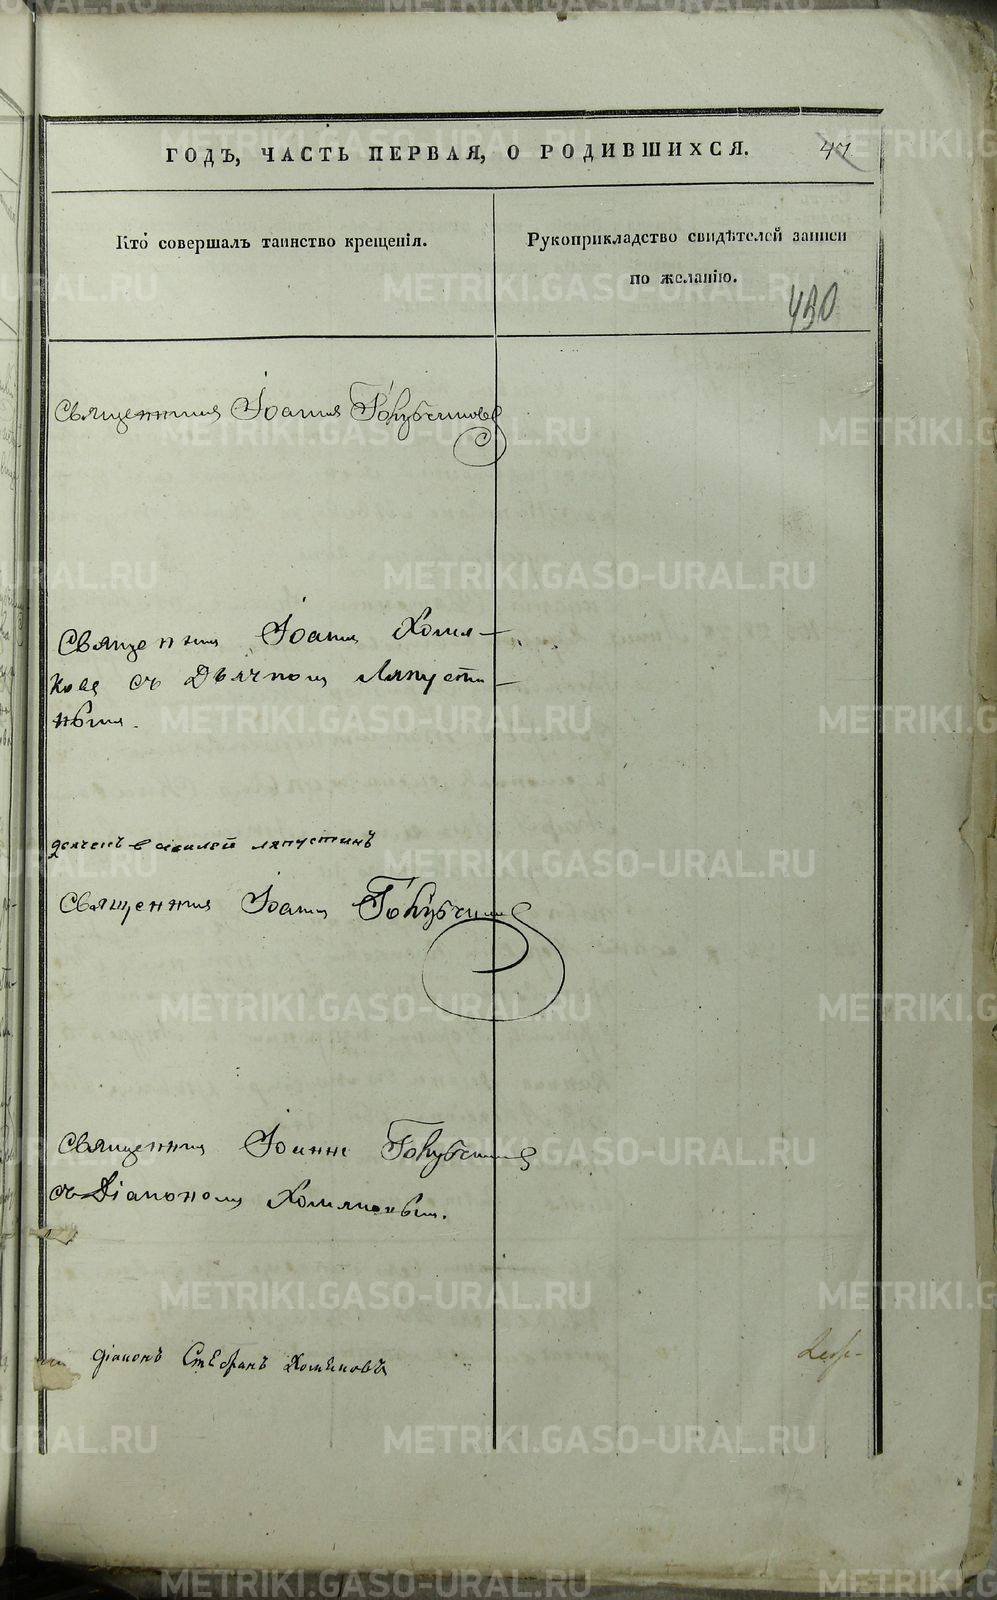 ГОДЪ, ЧАСТЬ ПЕРВАЯ, О РОДИВШИХСЯ.
47
Кто совершалъ таинство крещенія.
Рукоприкладство свидѣтелей записи
по желанію.
430
Священникъ Іоаннъ Голубчиковъ
Священникъ Іоаннъ Хомя-
ковъ съ Дьячкомъ Ляпусти-
нымъ.
дьячекъ василей ляпустинъ
Священникъ Іоаннъ Голубчиковъ
Священникъ Іоаннъ Голубчиковъ
съ Діакономъ Хомяковымъ.
діаконъ Стефанъ Хомяковъ
METRIKI.GASO-URAL.RU